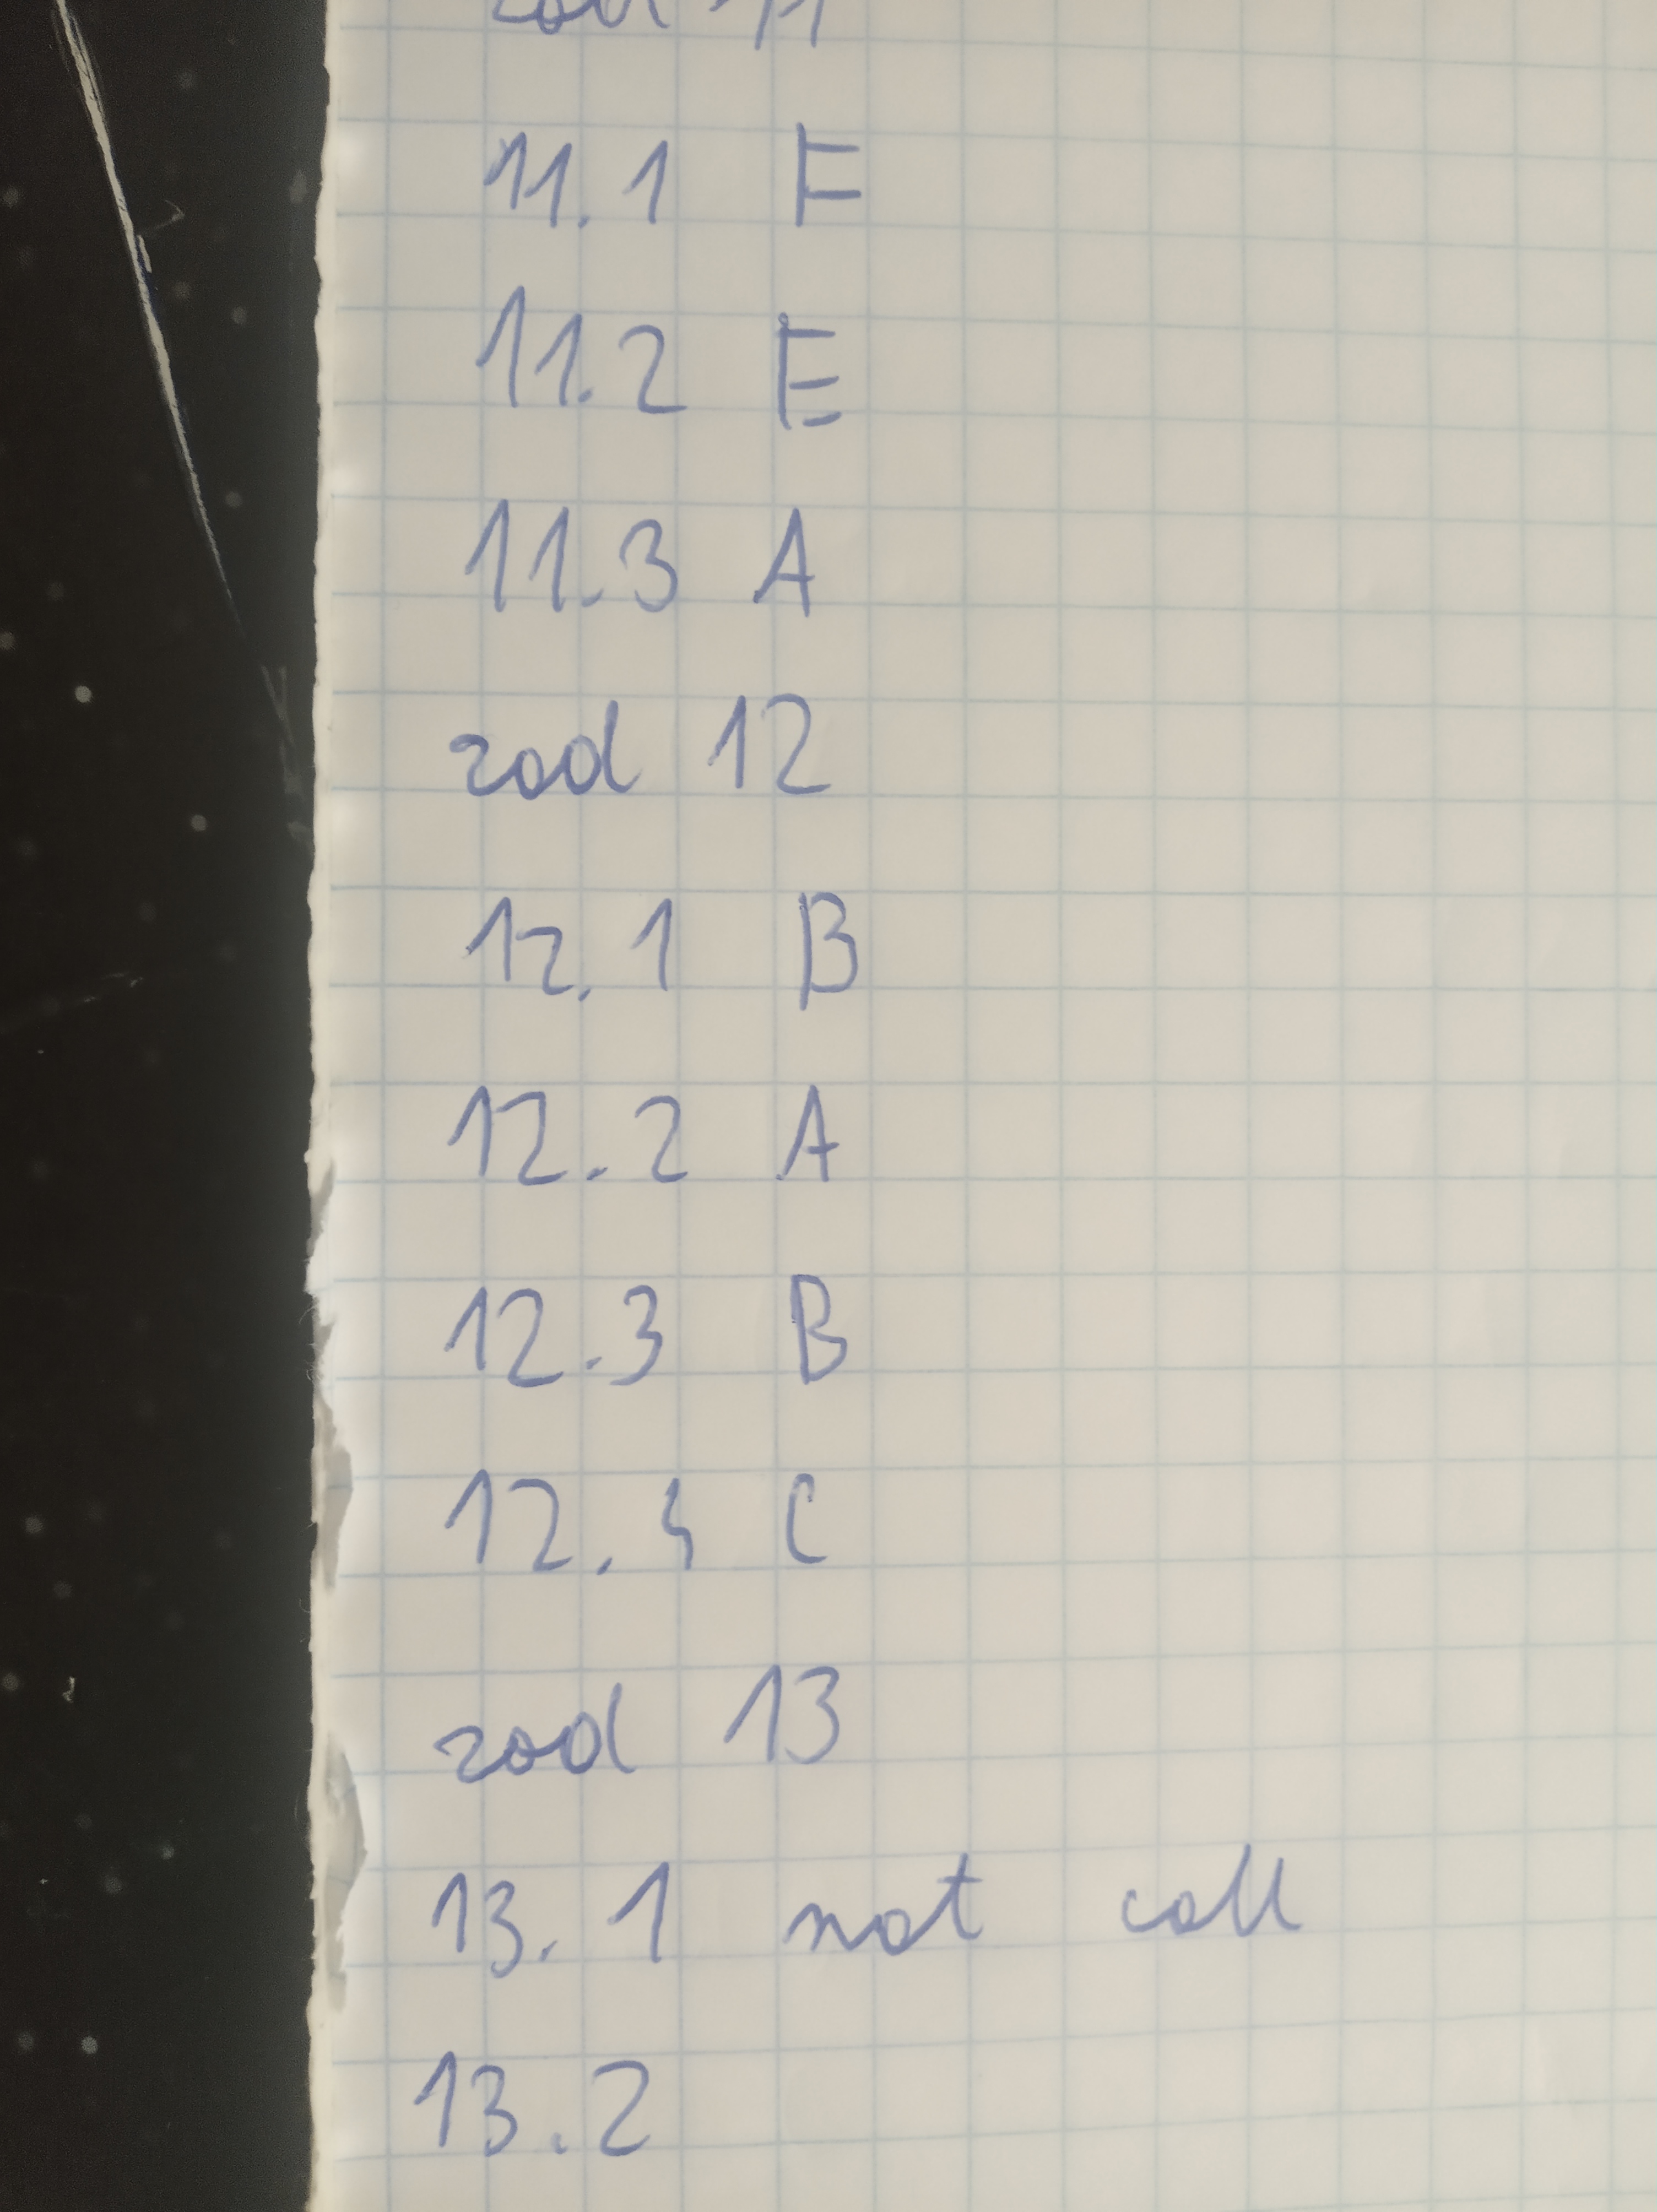 zad 11
11.1 F
11.2 E
11.3 A
zad 12
12.1 B
12.2 A
12.3 B
12.4 C
zad 13
13.1 not call
13.2